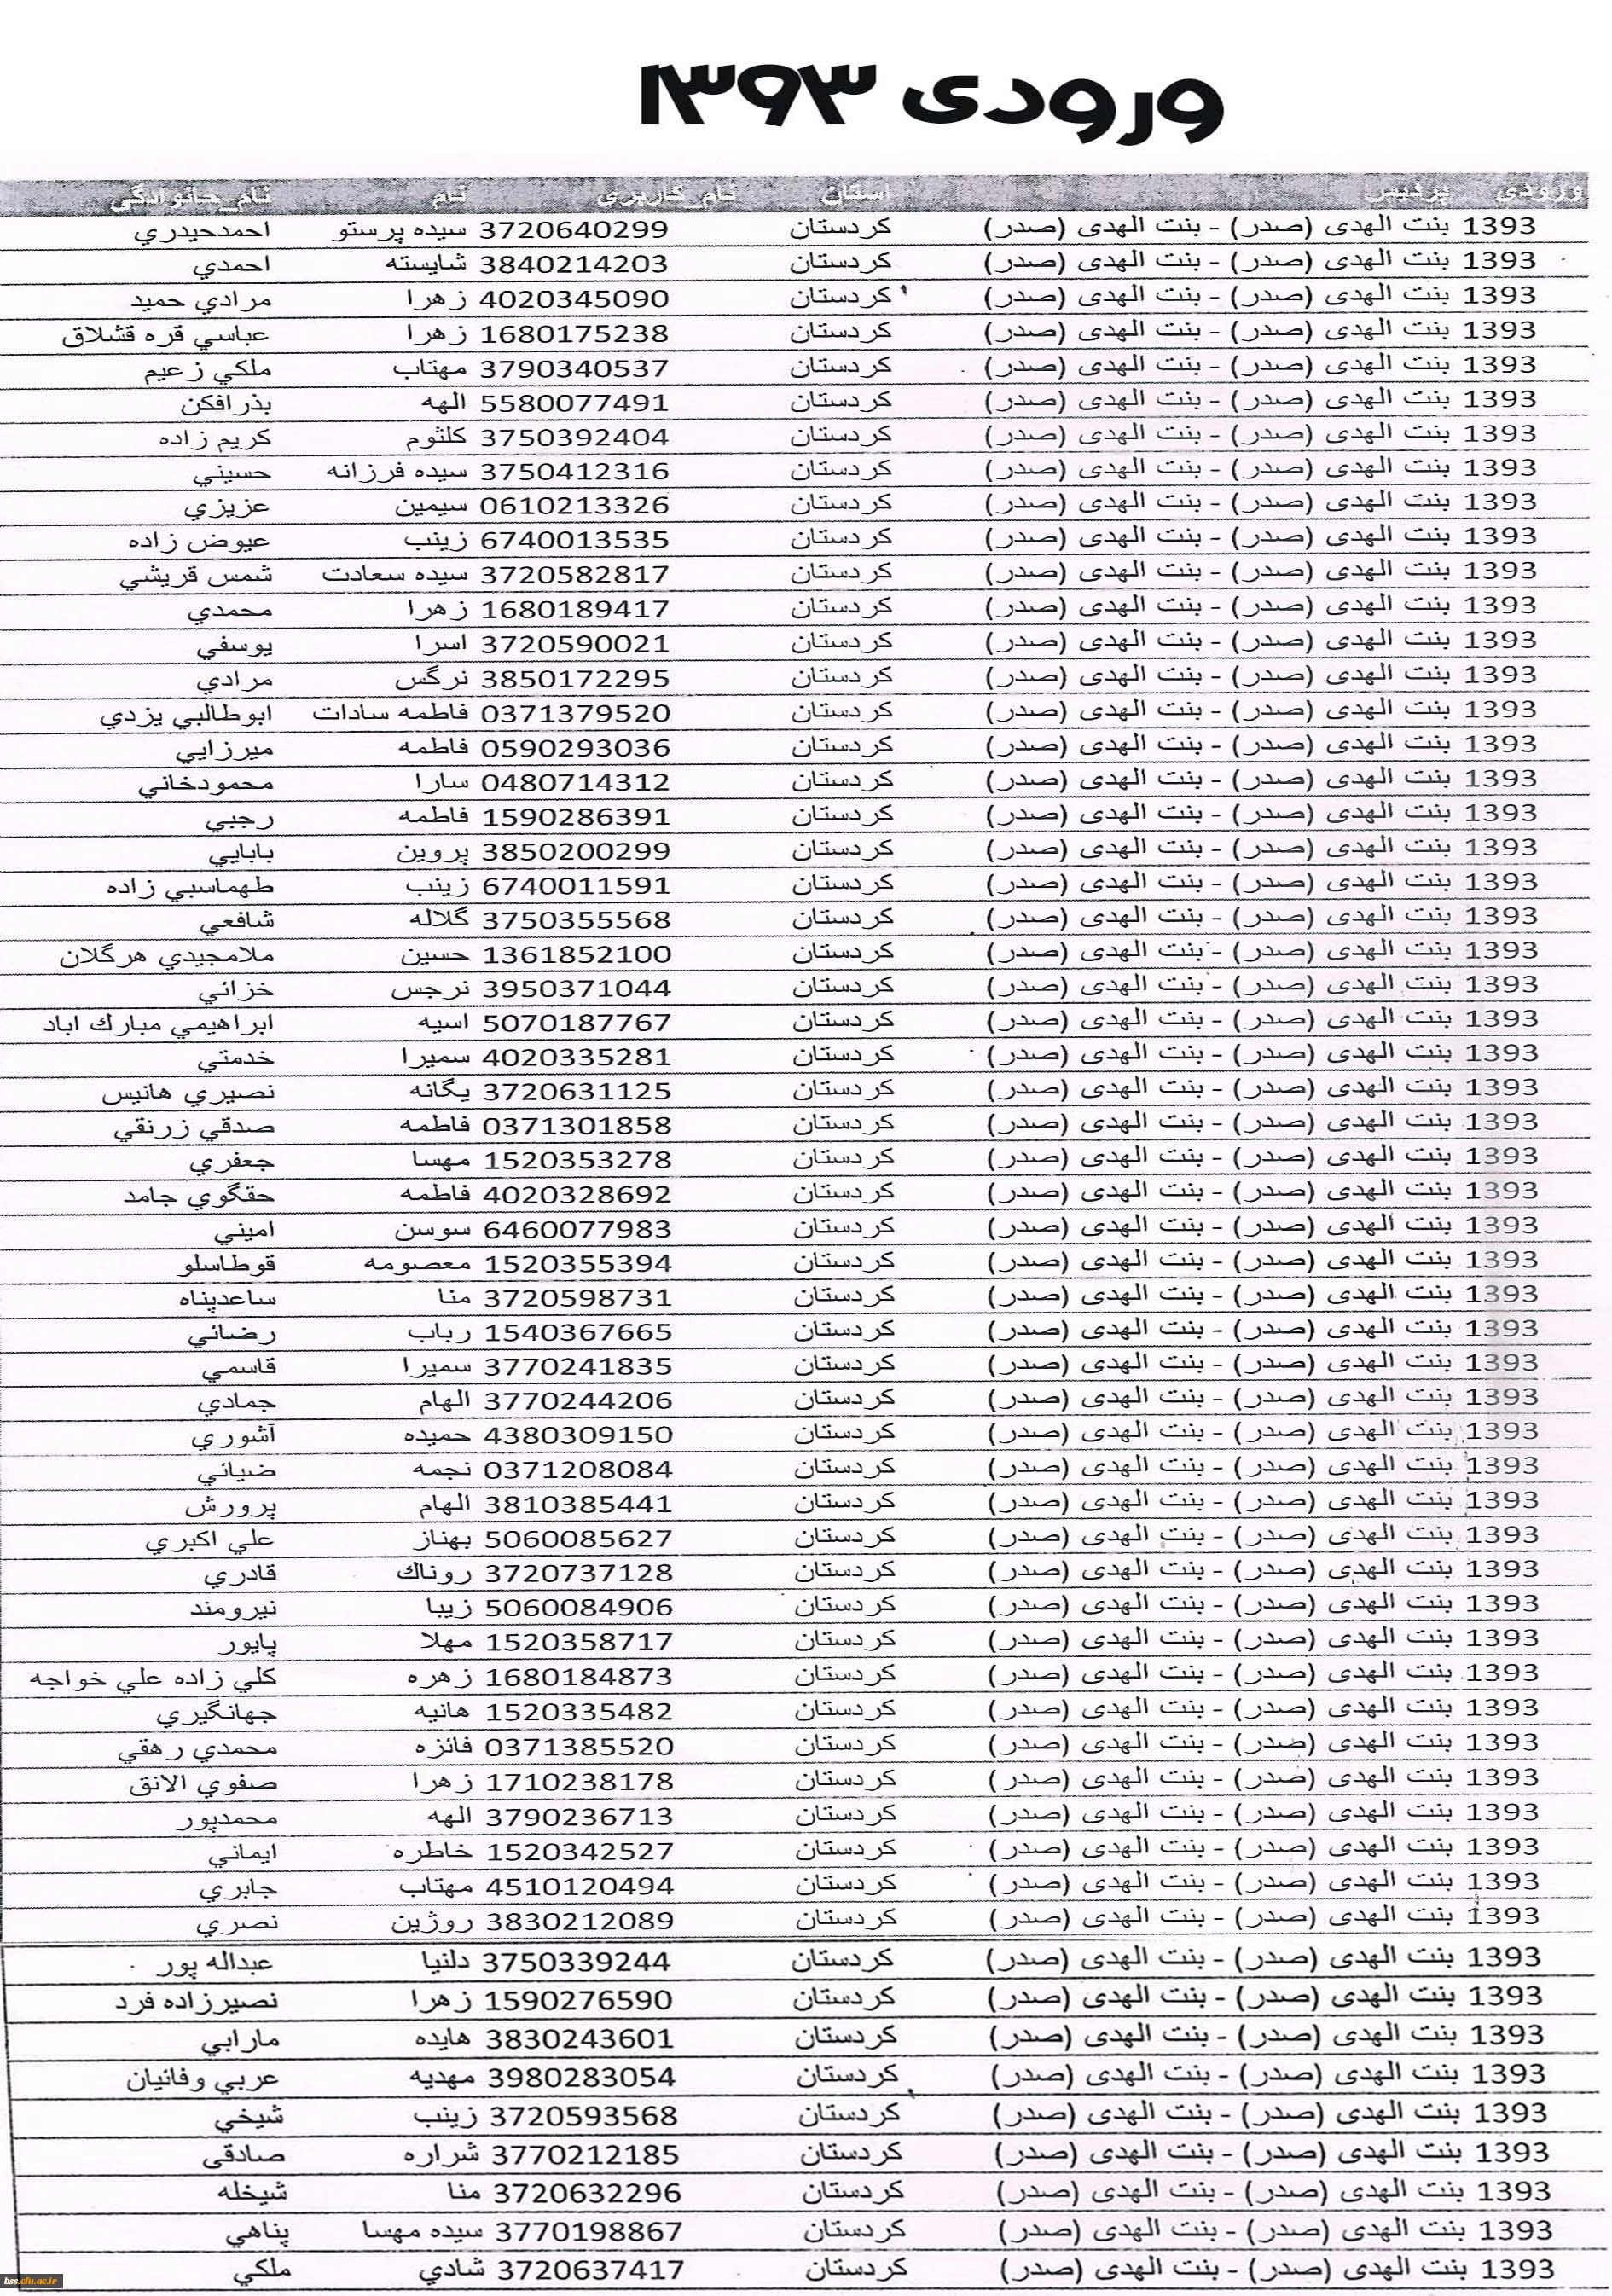 ورودی ۱۳۹۳
ورودی پردیس استان نام_کاربری نام نام_خانوادگی
1393 بنت الهدی (صدر) - بنت الهدی (صدر) کردستان 3720640299 سیده پرستو احمدحیدري
1393 بنت الهدی (صدر) - بنت الهدی (صدر) کردستان 3840214203 شایسته احمدي
1393 بنت الهدی (صدر) - بنت الهدی (صدر) کردستان 4020345090 زهرا مرادي حمید
1393 بنت الهدی (صدر) - بنت الهدی (صدر) کردستان 1680175238 زهرا عباسي قره قشلاق
1393 بنت الهدی (صدر) - بنت الهدی (صدر) کردستان 3790340537 مهتاب ملکي زعیم
1393 بنت الهدی (صدر) - بنت الهدی (صدر) کردستان 5580077491 الهه بذرافکن
1393 بنت الهدی (صدر) - بنت الهدی (صدر) کردستان 3750392404 کلثوم کریم زاده
1393 بنت الهدی (صدر) - بنت الهدی (صدر) کردستان 3750412316 سیده فرزانه حسیني
1393 بنت الهدی (صدر) - بنت الهدی (صدر) کردستان 0610213326 سیمین عزیزي
1393 بنت الهدی (صدر) - بنت الهدی (صدر) کردستان 6740013535 زینب عیوض زاده
1393 بنت الهدی (صدر) - بنت الهدی (صدر) کردستان 3720582817 سیده سعادت شمس قریشي
1393 بنت الهدی (صدر) - بنت الهدی (صدر) کردستان 1680189417 زهرا محمدي
1393 بنت الهدی (صدر) - بنت الهدی (صدر) کردستان 3720590021 اسرا یوسفي
1393 بنت الهدی (صدر) - بنت الهدی (صدر) کردستان 3850172295 نرگس مرادي
1393 بنت الهدی (صدر) - بنت الهدی (صدر) کردستان 0371379520 فاطمه سادات ابوطالبي یزدي
1393 بنت الهدی (صدر) - بنت الهدی (صدر) کردستان 0590293036 فاطمه میرزایي
1393 بنت الهدی (صدر) - بنت الهدی (صدر) کردستان 0480714312 سارا محمودخاني
1393 بنت الهدی (صدر) - بنت الهدی (صدر) کردستان 1590286391 فاطمه رجبي
1393 بنت الهدی (صدر) - بنت الهدی (صدر) کردستان 3850200299 پروین بابایي
1393 بنت الهدی (صدر) - بنت الهدی (صدر) کردستان 6740011591 زینب طهماسبي زاده
1393 بنت الهدی (صدر) - بنت الهدی (صدر) کردستان 3750355568 گلاله شافعي
1393 بنت الهدی (صدر) - بنت الهدی (صدر) کردستان 1361852100 حسین ملامجیدي هرگلان
1393 بنت الهدی (صدر) - بنت الهدی (صدر) کردستان 3950371044 نرجس خزائي
1393 بنت الهدی (صدر) - بنت الهدی (صدر) کردستان 5070187767 اسیه ابراهیمي مبارك اباد
1393 بنت الهدی (صدر) - بنت الهدی (صدر) کردستان 4020335281 سمیرا خدمتي
1393 بنت الهدی (صدر) - بنت الهدی (صدر) کردستان 3720631125 یگانه نصیري هانیس
1393 بنت الهدی (صدر) - بنت الهدی (صدر) کردستان 0371301858 فاطمه صدقي زرنقي
1393 بنت الهدی (صدر) - بنت الهدی (صدر) کردستان 1520353278 مهسا جعفري
1393 بنت الهدی (صدر) - بنت الهدی (صدر) کردستان 4020328692 فاطمه حقگوي جامد
1393 بنت الهدی (صدر) - بنت الهدی (صدر) کردستان 6460077983 سوسن امیني
1393 بنت الهدی (صدر) - بنت الهدی (صدر) کردستان 1520355394 معصومه قوطاسلو
1393 بنت الهدی (صدر) - بنت الهدی (صدر) کردستان 3720598731 منا ساعدپناه
1393 بنت الهدی (صدر) - بنت الهدی (صدر) کردستان 1540367665 رباب رضائي
1393 بنت الهدی (صدر) - بنت الهدی (صدر) کردستان 3770241835 سمیرا قاسمي
1393 بنت الهدی (صدر) - بنت الهدی (صدر) کردستان 3770244206 الهام جمادي
1393 بنت الهدی (صدر) - بنت الهدی (صدر) کردستان 4380309150 حمیده آشوري
1393 بنت الهدی (صدر) - بنت الهدی (صدر) کردستان 0371208084 نجمه ضیائي
1393 بنت الهدی (صدر) - بنت الهدی (صدر) کردستان 3810385441 الهام پرورش
1393 بنت الهدی (صدر) - بنت الهدی (صدر) کردستان 5060085627 بهناز علي اکبري
1393 بنت الهدی (صدر) - بنت الهدی (صدر) کردستان 3720737128 روناك قادري
1393 بنت الهدی (صدر) - بنت الهدی (صدر) کردستان 5060084906 زیبا نیرومند
1393 بنت الهدی (صدر) - بنت الهدی (صدر) کردستان 1520358717 مهلا پایور
1393 بنت الهدی (صدر) - بنت الهدی (صدر) کردستان 1680184873 زهره کلي زاده علي خواجه
1393 بنت الهدی (صدر) - بنت الهدی (صدر) کردستان 1520335482 هانیه جهانگیري
1393 بنت الهدی (صدر) - بنت الهدی (صدر) کردستان 0371385520 فائزه محمدي رهقي
1393 بنت الهدی (صدر) - بنت الهدی (صدر) کردستان 1710238178 زهرا صفوي الانق
1393 بنت الهدی (صدر) - بنت الهدی (صدر) کردستان 3790236713 الهه محمدپور
1393 بنت الهدی (صدر) - بنت الهدی (صدر) کردستان 1520342527 خاطره ایماني
1393 بنت الهدی (صدر) - بنت الهدی (صدر) کردستان 4510120494 مهتاب جابري
1393 بنت الهدی (صدر) - بنت الهدی (صدر) کردستان 3830212089 روژین نصري
1393 بنت الهدی (صدر) - بنت الهدی (صدر) کردستان 3750339244 دلنیا عبداله پور
1393 بنت الهدی (صدر) - بنت الهدی (صدر) کردستان 1590276590 زهرا نصیرزاده فرد
1393 بنت الهدی (صدر) - بنت الهدی (صدر) کردستان 3830243601 هایده مارابي
1393 بنت الهدی (صدر) - بنت الهدی (صدر) کردستان 3980283054 مهدیه عربي وفائیان
1393 بنت الهدی (صدر) - بنت الهدی (صدر) کردستان 3720593568 زینب شیخي
1393 بنت الهدی (صدر) - بنت الهدی (صدر) کردستان 3770212185 شراره صادقی
1393 بنت الهدی (صدر) - بنت الهدی (صدر) کردستان 3720632296 منا شیخله
1393 بنت الهدی (صدر) - بنت الهدی (صدر) کردستان 3770198867 سیده مهسا پناهي
1393 بنت الهدی (صدر) - بنت الهدی (صدر) کردستان 3720637417 شادي ملکي
bss.cfu.ac.ir